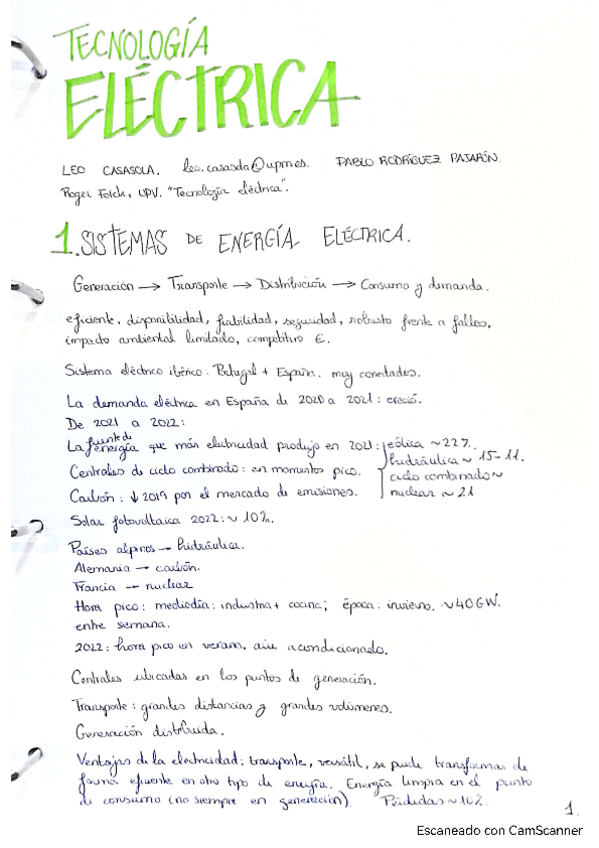 TECNOLOGÍA
ELÉCTRICA
LEO CASASOLA. leo.casasola@upm.es. PABLO RODRÍGUEZ PAJARÓN.
Roger Folch, UPV. "Tecnología eléctrica".
1. SISTEMAS DE ENERGÍA ELÉCTRICA.
Generación → Transporte → Distribución → Consumo y demanda.
eficiente, disponibilidad, fiabilidad, seguridad, robusto frente a fallos,
impacto ambiental limitado, competitivo €.
Sistema eléctrico ibérico: Portugal + España. muy conectados.
La demanda eléctrica en España de 2020 a 2021: creció.
De 2021 a 2022:
La fuente de energía que más electricidad produjo en 2021: eólica ~22%.
hidráulica ~ 15-11.
Centrales de ciclo combinado: en momentos pico. ciclo combinado ~
Carbón: ↓ 2019 por el mercado de emisiones. nuclear ~ 21
Solar fotovoltaica 2022: ~ 10%.
Países alpinos → hidráulica.
Alemania → carbón.
Francia → nuclear
Hora pico: mediodía: industria + cocina; época: invierno. ~40GW.
entre semana.
2022: hora pico en verano, aire acondicionado.
Centrales ubicadas en los puntos de generación.
Transporte: grandes distancias y grandes volúmenes.
Generación distribuida.
Ventajas de la electricidad: transporte, versátil, se puede transformar de
forma eficiente en otro tipo de energía. Energía limpia en el punto
de consumo (no siempre en generación). Pérdidas ~10%.
1.
Escaneado con CamScanner